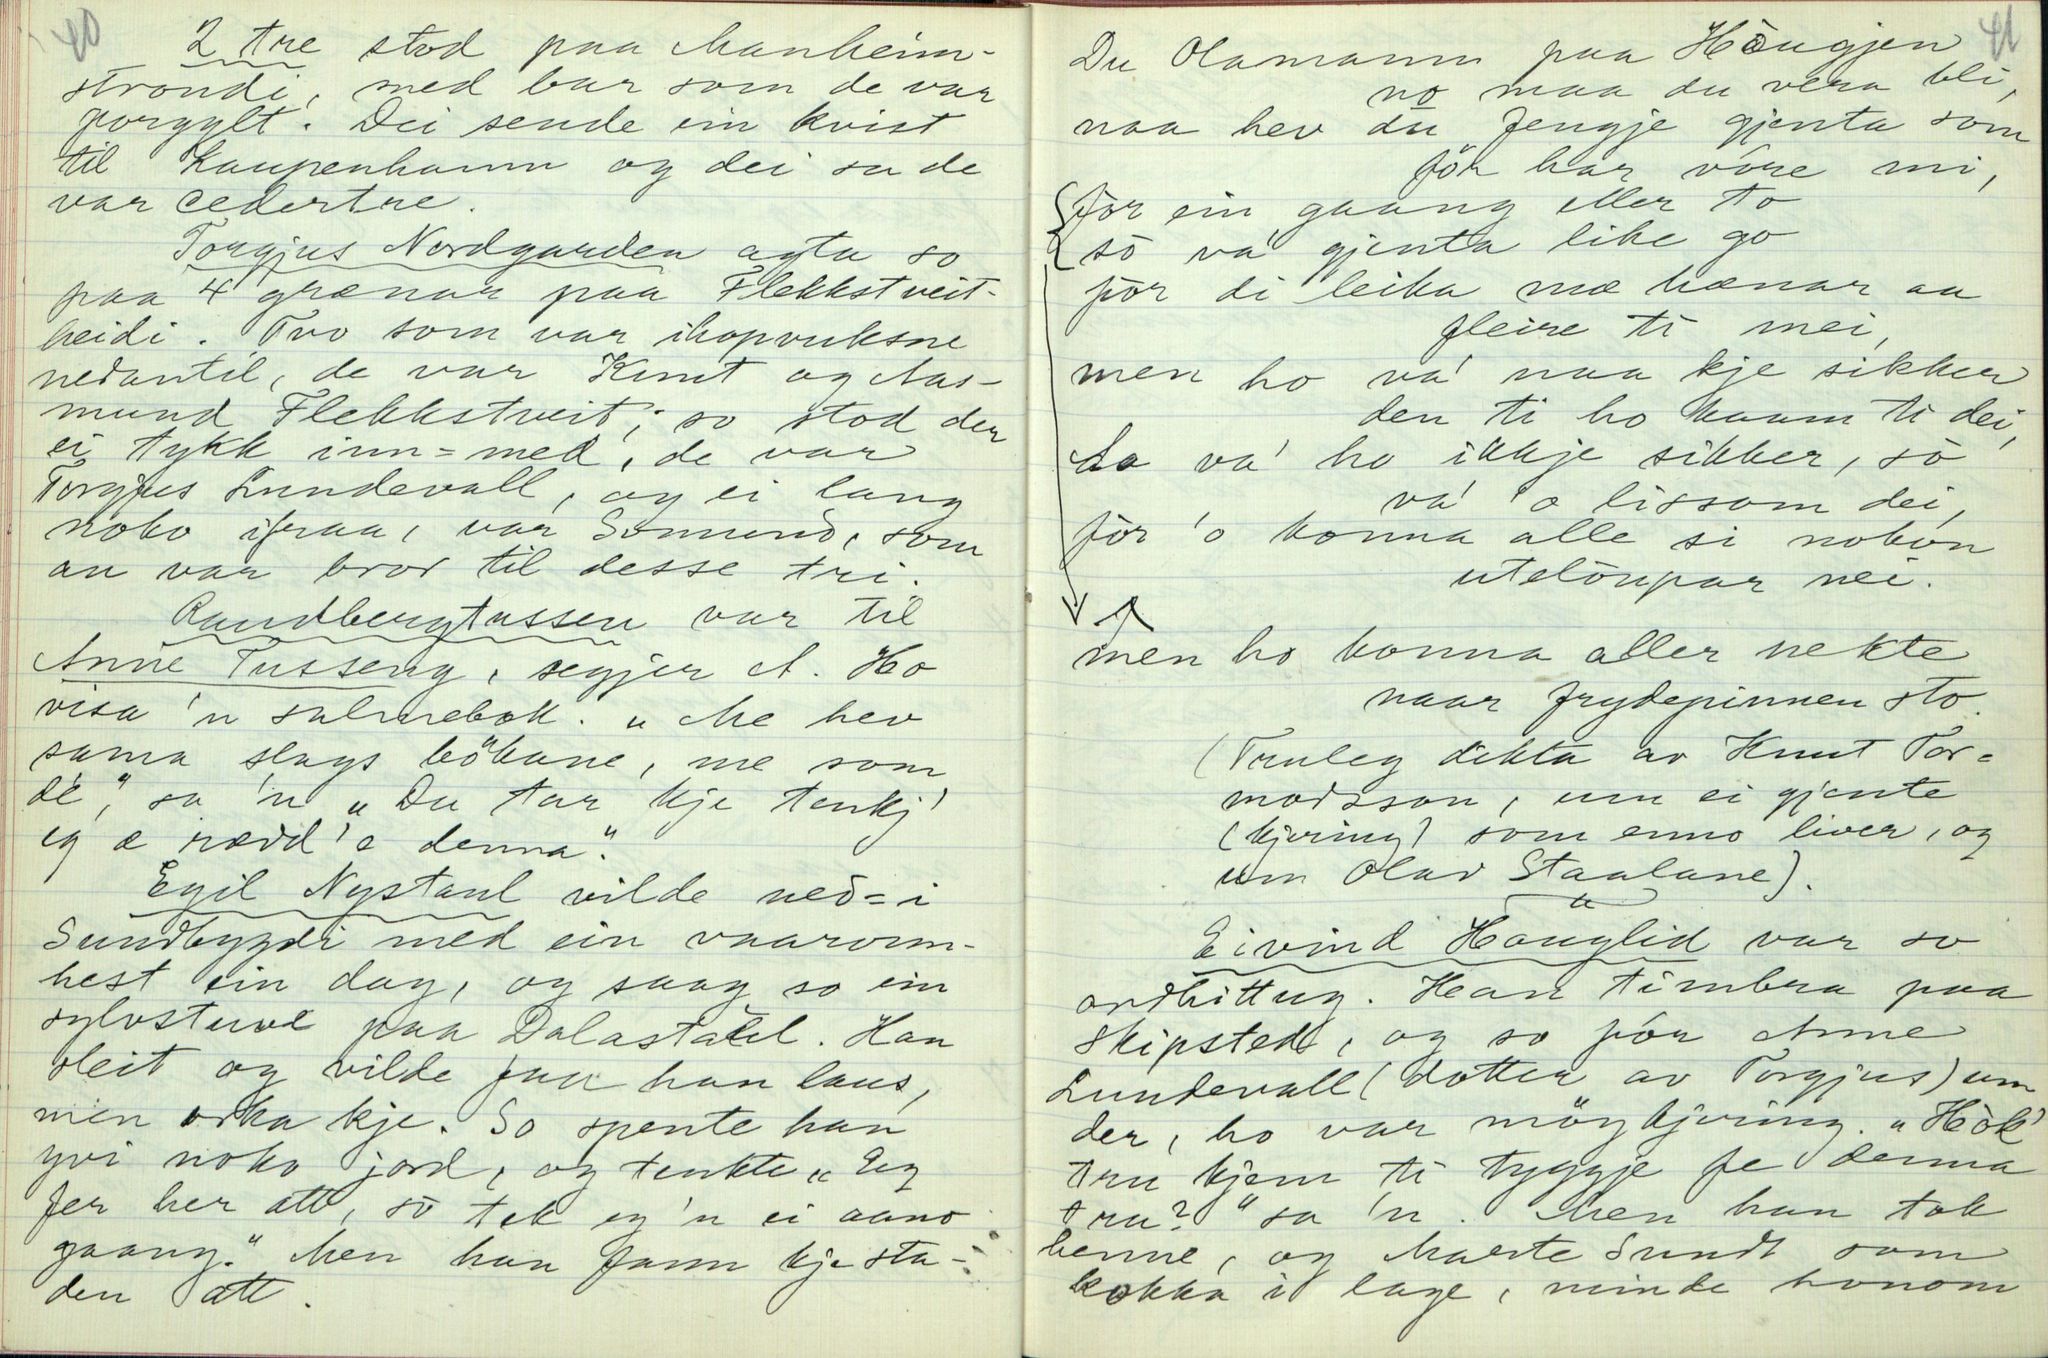 40
2 tre stod paa Manheim-
strondi, med bar som de var
forgylt. Dei sende ein kvist
til Kaupenhamn og dei sa de
var cedertre.
Torgjus Nordgarden agta so
paa 4 grænar paa Flekkstveit-
heidi. Tvo som var ihopvuksne
nedantil, de var Knut og Aas-
mund Flekkstveit; so stod der
ei tykk inn-med, de var
Torgjus Lundevall, og ei lang
noko ifraa, var Sømund, som
an var bror til desse tri.
Raudbergtussen var til
Anne Tusseng, segjer A. Ho
visa 'n salmebok. „Me hev
sama slags bökane, me som
dé", sa 'n „Du tar kje tenkj'
eg æ rædd 'e denna".
Egil Nystaul vilde ned-i
Sundbygdi med ein vaaronn-
hest ein dag, og saag so ein
sylvstuvl paa Dalastaul. Han
sleit og vilde faa han laus,
men orka kje. So spente han
yvi noko jord, og tenkte „Eg
fer her att, sò tek eg 'n ei aano
gaang." Men han fann kje sta-
den att.
41
Du Olamann paa Hòugjen
no maa du vera bli,
naa hev du fengje gjenta som
för har vóre mi,
för ein gaang eller to
sò va' gjenta like go
för di leika mæ hænar aa
fleire ti mei,
men ho va' naa kje sikker
den ti ho kaam ti dei,
Aa va' ho ikkje sikker, sò
va' 'o lissom dei,
för 'o konna alle si nokon
utelòupar nei.
men ho konna aller nekte
naar frydepinnen sto.
(Truleg dikta av Knut Tor-
modsson, um ei gjente
(kjering) som enno liver, og
um Olav Staalane).
Eivind Hauglid var so
ordhittug. Han timbra paa
Skipsted, og so fór Anne
Lundevall (dotter av Torgjus) um
der, ho var möykjering. „Hòk'
tru kjem ti tyggje fe denna
tru?" sa 'n. Men han tok
henne, og Marte Sundt som
kokka i lage, minde honom